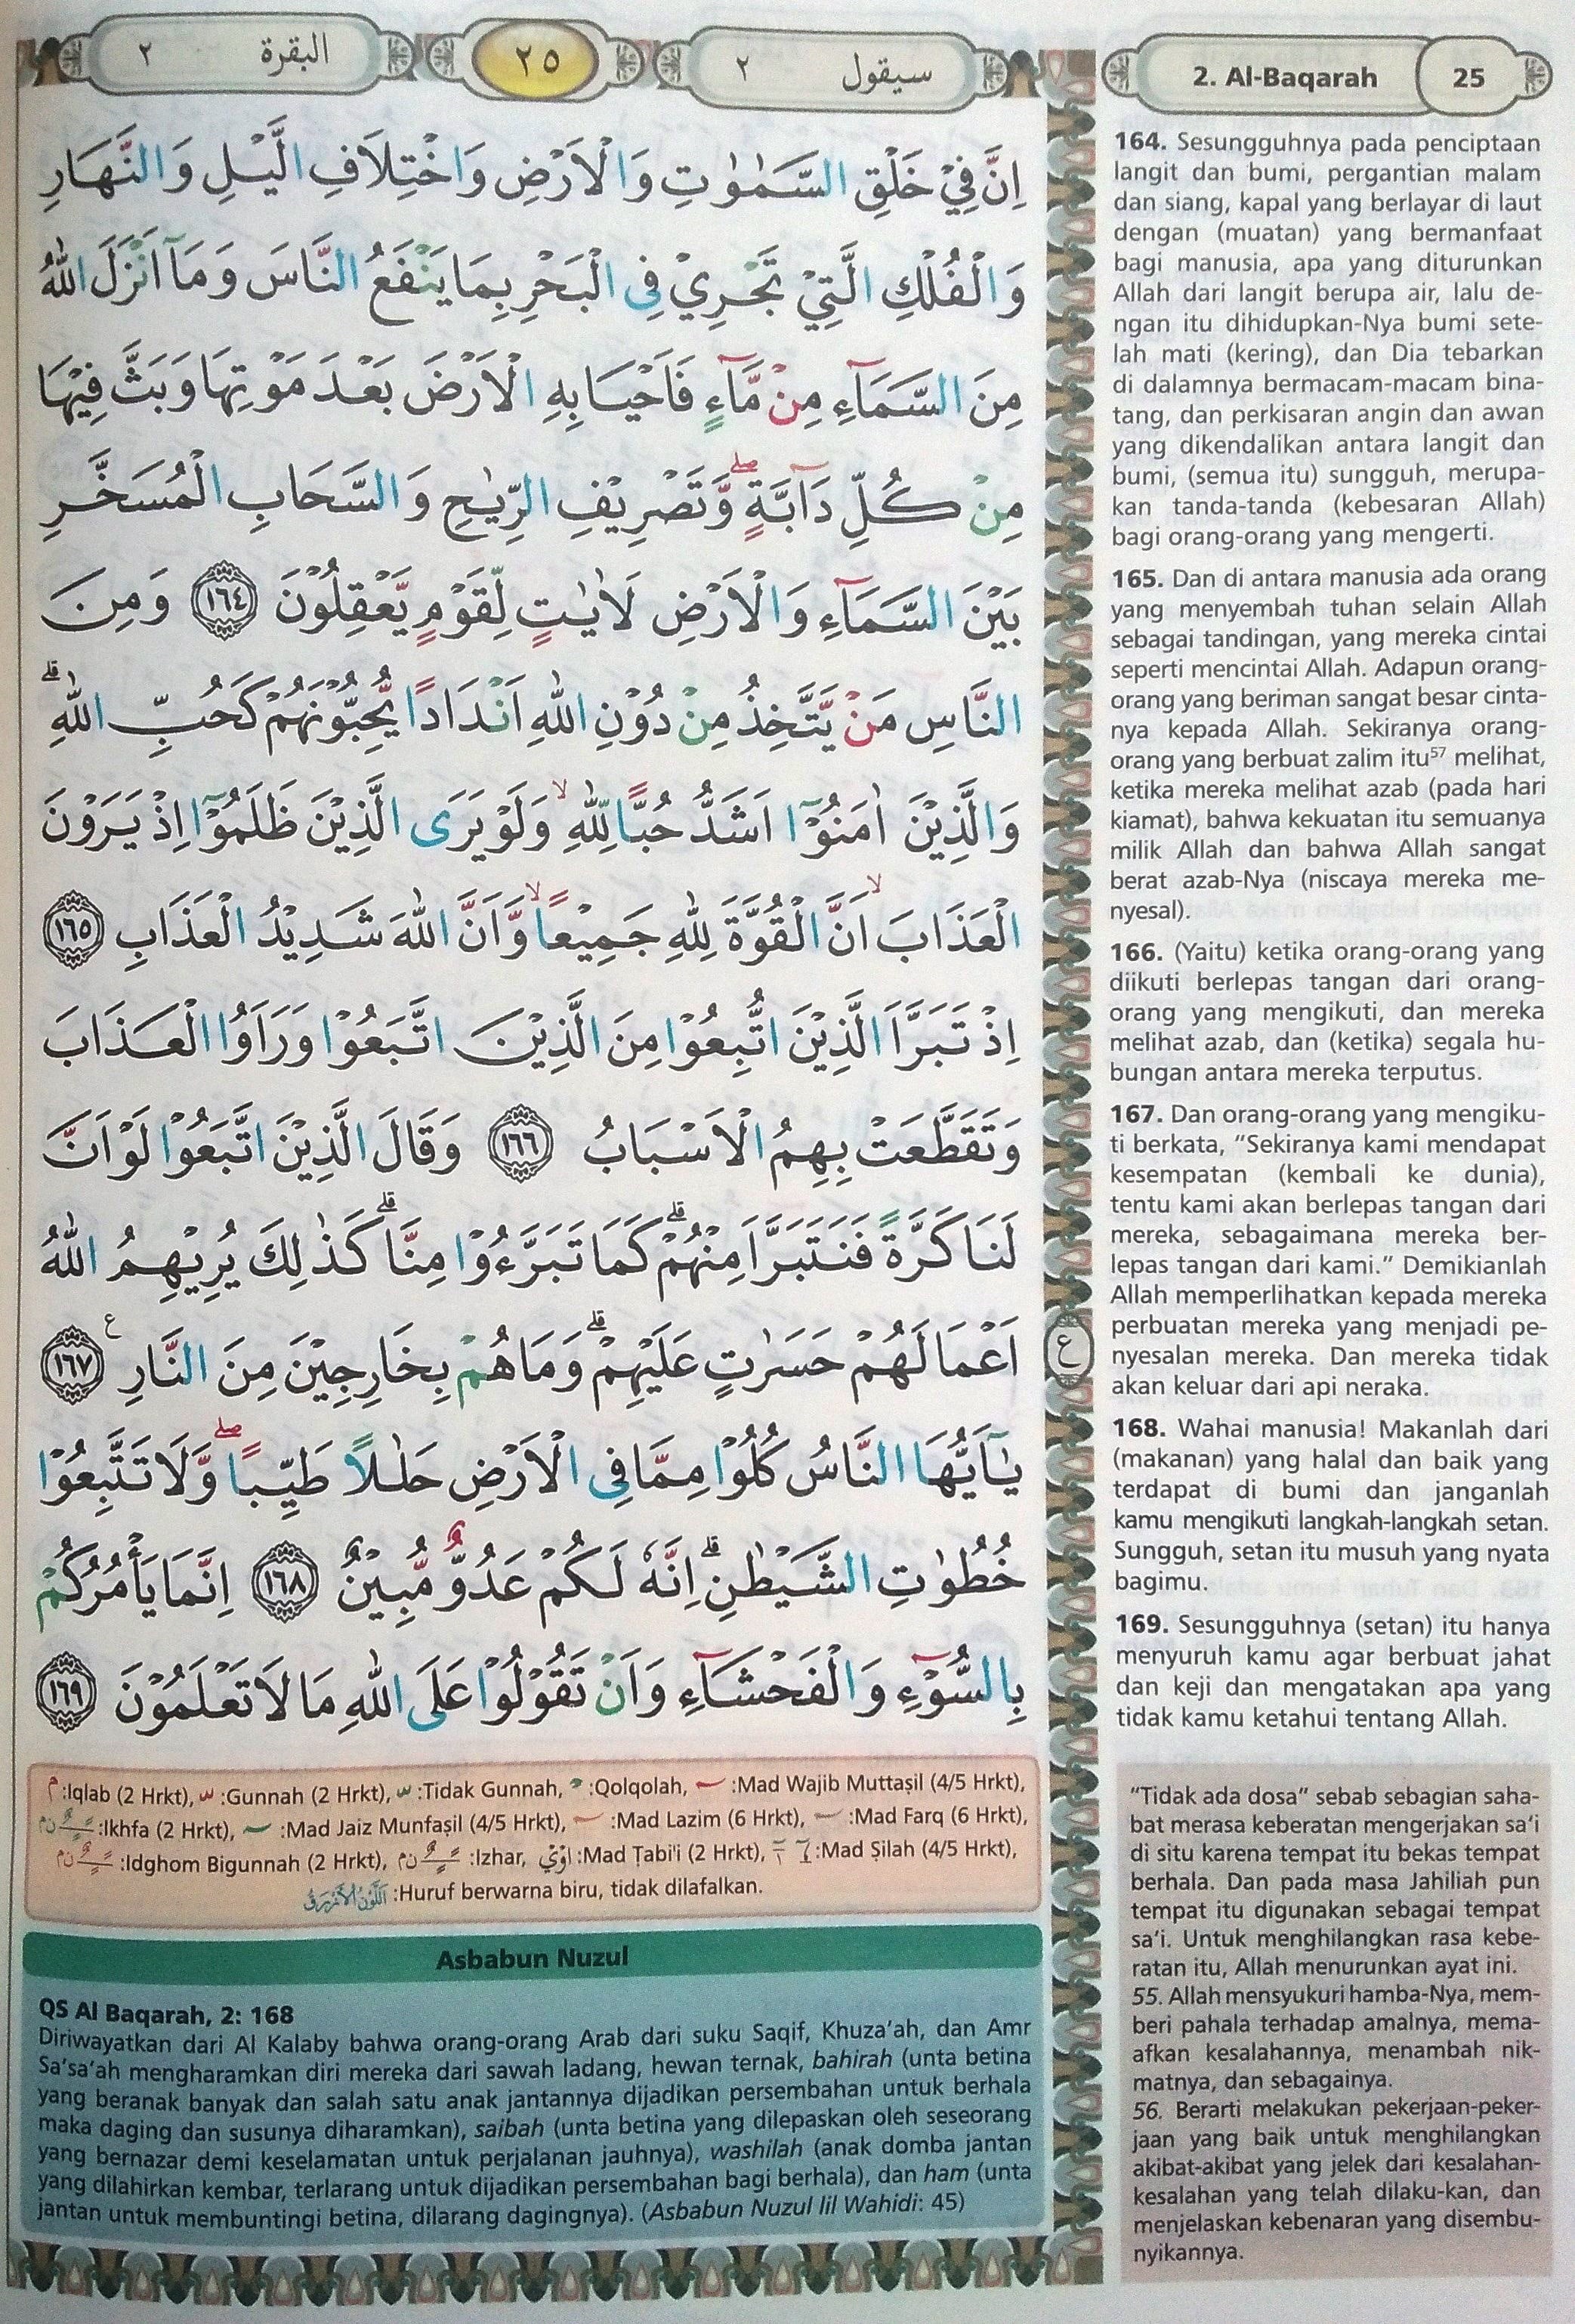 البقرة ٢
٢٥
سيقول ٢
2. Al-Baqarah 25
اِنَّ فِيْ خَلْقِ السَّمٰوٰتِ وَالْاَرْضِ وَاخْتِلَافِ الَّيْلِ وَالنَّهَارِ
وَالْفُلْكِ الَّتِيْ تَجْرِيْ فِى الْبَحْرِ بِمَا يَنْفَعُ النَّاسَ وَمَآ اَنْزَلَ اللّٰهُ
مِنَ السَّمَاۤءِ مِنْ مَّاۤءٍ فَاَحْيَا بِهِ الْاَرْضَ بَعْدَ مَوْتِهَا وَبَثَّ فِيْهَا
مِنْ كُلِّ دَاۤبَّةٍۖ وَّتَصْرِيْفِ الرِّيٰحِ وَالسَّحَابِ الْمُسَخَّرِ
بَيْنَ السَّمَاۤءِ وَالْاَرْضِ لَاٰيٰتٍ لِّقَوْمٍ يَّعْقِلُوْنَ ١٦٤ وَمِنَ
النَّاسِ مَنْ يَّتَّخِذُ مِنْ دُوْنِ اللّٰهِ اَنْدَادًا يُّحِبُّوْنَهُمْ كَحُبِّ اللّٰهِۗ
وَالَّذِيْنَ اٰمَنُوْٓا اَشَدُّ حُبًّا لِلّٰهِۙ وَلَوْ يَرَى الَّذِيْنَ ظَلَمُوْٓا اِذْ يَرَوْنَ
الْعَذَابَۙ اَنَّ الْقُوَّةَ لِلّٰهِ جَمِيْعًاۙ وَّاَنَّ اللّٰهَ شَدِيْدُ الْعَذَابِ ١٦٥
اِذْ تَبَرَّاَ الَّذِيْنَ اتُّبِعُوْا مِنَ الَّذِيْنَ اتَّبَعُوْا وَرَاَوُا الْعَذَابَ
وَتَقَطَّعَتْ بِهِمُ الْاَسْبَابُ ١٦٦ وَقَالَ الَّذِيْنَ اتَّبَعُوْا لَوْ اَنَّ
لَنَا كَرَّةً فَنَتَبَرَّاَ مِنْهُمْۗ كَمَا تَبَرَّءُوْا مِنَّاۗ كَذٰلِكَ يُرِيْهِمُ اللّٰهُ
اَعْمَالَهُمْ حَسَرٰتٍ عَلَيْهِمْۗ وَمَا هُمْ بِخَارِجِيْنَ مِنَ النَّارِ ࣖ ١٦٧
ع
يٰٓاَيُّهَا النَّاسُ كُلُوْا مِمَّا فِى الْاَرْضِ حَلٰلًا طَيِّبًاۖ وَّلَا تَتَّبِعُوْا
خُطُوٰتِ الشَّيْطٰنِۗ اِنَّهٗ لَكُمْ عَدُوٌّ مُّبِيْنٌ ١٦٨ اِنَّمَا يَأْمُرُكُمْ
بِالسُّوْۤءِ وَالْفَحْشَاۤءِ وَاَنْ تَقُوْلُوْا عَلَى اللّٰهِ مَا لَا تَعْلَمُوْنَ ١٦٩
م :Iqlab (2 Hrkt), :Gunnah (2 Hrkt), :Tidak Gunnah, :Qolqolah, :Mad Wajib Muttaṣil (4/5 Hrkt),
:Ikhfa (2 Hrkt), :Mad Jaiz Munfaṣil (4/5 Hrkt), :Mad Lazim (6 Hrkt), :Mad Farq (6 Hrkt),
:Idghom Bigunnah (2 Hrkt), :Izhar, :Mad Ṭabi'i (2 Hrkt), :Mad Ṣilah (4/5 Hrkt),
اَللَّوْنُ الْاَزْرَقُ :Huruf berwarna biru, tidak dilafalkan.
Asbabun Nuzul
QS Al Baqarah, 2: 168
Diriwayatkan dari Al Kalaby bahwa orang-orang Arab dari suku Saqif, Khuza‘ah, dan Amr
Sa‘sa‘ah mengharamkan diri mereka dari sawah ladang, hewan ternak, bahirah (unta betina
yang beranak banyak dan salah satu anak jantannya dijadikan persembahan untuk berhala
maka daging dan susunya diharamkan), saibah (unta betina yang dilepaskan oleh seseorang
yang bernazar demi keselamatan untuk perjalanan jauhnya), washilah (anak domba jantan
yang dilahirkan kembar, terlarang untuk dijadikan persembahan bagi berhala), dan ham (unta
jantan untuk membuntingi betina, dilarang dagingnya). (Asbabun Nuzul lil Wahidi: 45)
164. Sesungguhnya pada penciptaan
langit dan bumi, pergantian malam
dan siang, kapal yang berlayar di laut
dengan (muatan) yang bermanfaat
bagi manusia, apa yang diturunkan
Allah dari langit berupa air, lalu de-
ngan itu dihidupkan-Nya bumi sete-
lah mati (kering), dan Dia tebarkan
di dalamnya bermacam-macam bina-
tang, dan perkisaran angin dan awan
yang dikendalikan antara langit dan
bumi, (semua itu) sungguh, merupa-
kan tanda-tanda (kebesaran Allah)
bagi orang-orang yang mengerti.
165. Dan di antara manusia ada orang
yang menyembah tuhan selain Allah
sebagai tandingan, yang mereka cintai
seperti mencintai Allah. Adapun orang-
orang yang beriman sangat besar cinta-
nya kepada Allah. Sekiranya orang-
orang yang berbuat zalim itu⁵⁷ melihat,
ketika mereka melihat azab (pada hari
kiamat), bahwa kekuatan itu semuanya
milik Allah dan bahwa Allah sangat
berat azab-Nya (niscaya mereka me-
nyesal).
166. (Yaitu) ketika orang-orang yang
diikuti berlepas tangan dari orang-
orang yang mengikuti, dan mereka
melihat azab, dan (ketika) segala hu-
bungan antara mereka terputus.
167. Dan orang-orang yang mengiku-
ti berkata, “Sekiranya kami mendapat
kesempatan (kembali ke dunia),
tentu kami akan berlepas tangan dari
mereka, sebagaimana mereka ber-
lepas tangan dari kami.” Demikianlah
Allah memperlihatkan kepada mereka
perbuatan mereka yang menjadi pe-
nyesalan mereka. Dan mereka tidak
akan keluar dari api neraka.
168. Wahai manusia! Makanlah dari
(makanan) yang halal dan baik yang
terdapat di bumi dan janganlah
kamu mengikuti langkah-langkah setan.
Sungguh, setan itu musuh yang nyata
bagimu.
169. Sesungguhnya (setan) itu hanya
menyuruh kamu agar berbuat jahat
dan keji dan mengatakan apa yang
tidak kamu ketahui tentang Allah.
“Tidak ada dosa” sebab sebagian saha-
bat merasa keberatan mengerjakan sa‘i
di situ karena tempat itu bekas tempat
berhala. Dan pada masa Jahiliah pun
tempat itu digunakan sebagai tempat
sa‘i. Untuk menghilangkan rasa kebe-
ratan itu, Allah menurunkan ayat ini.
55. Allah mensyukuri hamba-Nya, mem-
beri pahala terhadap amalnya, mema-
afkan kesalahannya, menambah nik-
matnya, dan sebagainya.
56. Berarti melakukan pekerjaan-peker-
jaan yang baik untuk menghilangkan
akibat-akibat yang jelek dari kesalahan-
kesalahan yang telah dilaku-kan, dan
menjelaskan kebenaran yang disembu-
nyikannya.